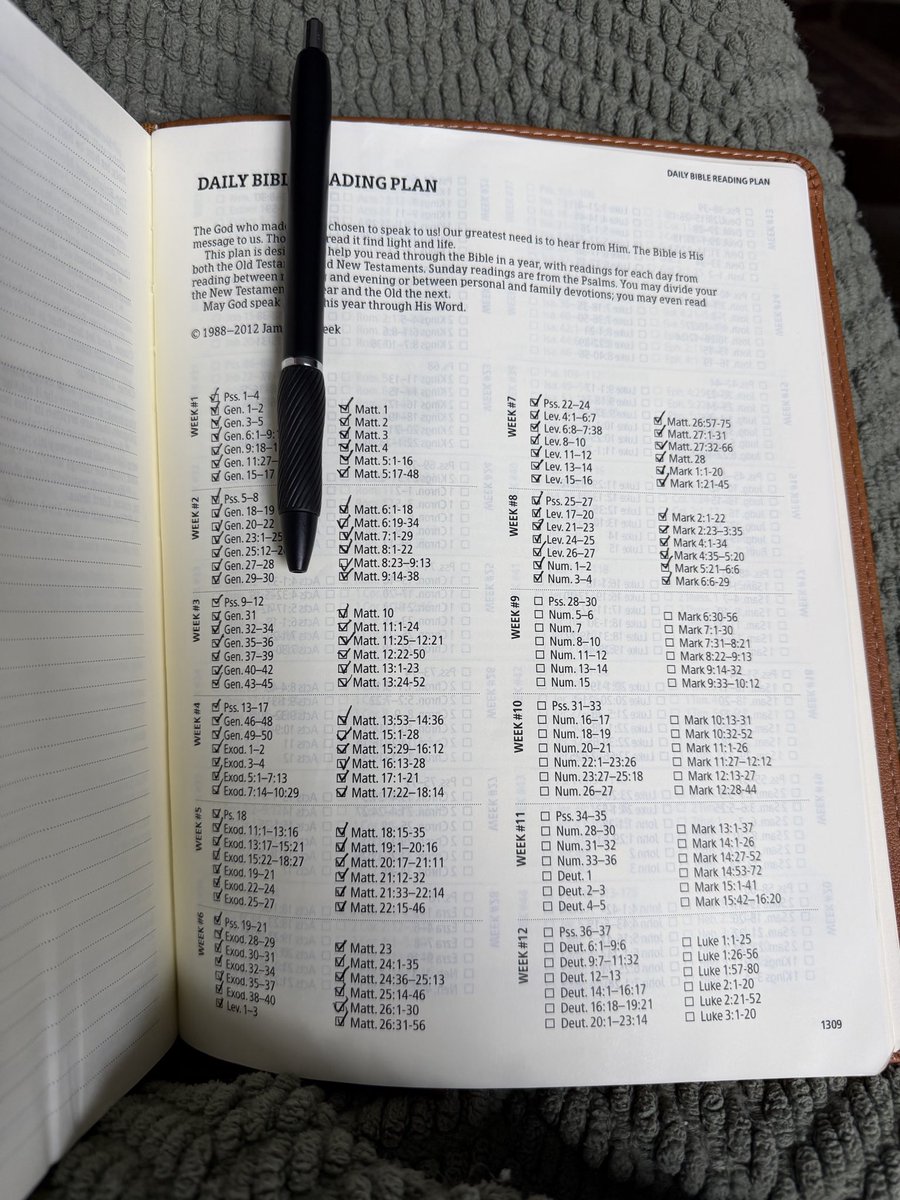 DAILY BIBLE READING PLAN
DAILY BIBL ADING PLAN
The God who made chosen to speak to us! Our greatest need is to hear from Him. The Bible is His
message to us. read it find light and life.
This plan is help you read through the Bible in a year, with readings for each day from
both the Old New Testaments. Sunday readings are from the Psalms. You may divide your
reading between and evening or between personal and family devotions; you may even read
the New and the Old the next.
May God speak this year through His Word.
© 1988–2012
WEEK #1
Pss. 1–4
Gen. 1–2
Gen. 3–5
Gen. 6:1–9:
Gen. 9:18–1
Gen. 11:27–
Gen. 15–17
Matt. 1
Matt. 2
Matt. 3
Matt. 4
Matt. 5:1-16
Matt. 5:17-48
WEEK #2
Pss. 5–8
Gen. 18–19
Gen. 20–22
Gen. 23:1–25
Gen. 25:12–2
Gen. 27–28
Gen. 29–30
Matt. 6:1-18
Matt. 6:19-34
Matt. 7:1-29
Matt. 8:1-22
Matt. 8:23–9:13
Matt. 9:14-38
WEEK #3
Pss. 9–12
Gen. 31
Gen. 32–34
Gen. 35–36
Gen. 37–39
Gen. 40–42
Gen. 43–45
Matt. 10
Matt. 11:1-24
Matt. 11:25–12:21
Matt. 12:22-50
Matt. 13:1-23
Matt. 13:24-52
WEEK #4
Pss. 13–17
Gen. 46–48
Gen. 49–50
Exod. 1–2
Exod. 3–4
Exod. 5:1–7:13
Exod. 7:14–10:29
Matt. 13:53–14:36
Matt. 15:1-28
Matt. 15:29–16:12
Matt. 16:13-28
Matt. 17:1-21
Matt. 17:22–18:14
WEEK #5
Ps. 18
Exod. 11:1–13:16
Exod. 13:17–15:21
Exod. 15:22–18:27
Exod. 19–21
Exod. 22–24
Exod. 25–27
Matt. 18:15-35
Matt. 19:1–20:16
Matt. 20:17–21:11
Matt. 21:12-32
Matt. 21:33–22:14
Matt. 22:15-46
WEEK #6
Pss. 19–21
Exod. 28–29
Exod. 30–31
Exod. 32–34
Exod. 35–37
Exod. 38–40
Lev. 1–3
Matt. 23
Matt. 24:1-35
Matt. 24:36–25:13
Matt. 25:14-46
Matt. 26:1-30
Matt. 26:31-56
WEEK #7
Pss. 22–24
Lev. 4:1–6:7
Lev. 6:8–7:38
Lev. 8–10
Lev. 11–12
Lev. 13–14
Lev. 15–16
Matt. 26:57-75
Matt. 27:1-31
Matt. 27:32-66
Matt. 28
Mark 1:1-20
Mark 1:21-45
WEEK #8
Pss. 25–27
Lev. 17–20
Lev. 21–23
Lev. 24–25
Lev. 26–27
Num. 1–2
Num. 3–4
Mark 2:1-22
Mark 2:23–3:35
Mark 4:1-34
Mark 4:35–5:20
Mark 5:21–6:6
Mark 6:6-29
WEEK #9
Pss. 28–30
Num. 5–6
Num. 7
Num. 8–10
Num. 11–12
Num. 13–14
Num. 15
Mark 6:30-56
Mark 7:1-30
Mark 7:31–8:21
Mark 8:22–9:13
Mark 9:14-32
Mark 9:33–10:12
WEEK #10
Pss. 31–33
Num. 16–17
Num. 18–19
Num. 20–21
Num. 22:1–23:26
Num. 23:27–25:18
Num. 26–27
Mark 10:13-31
Mark 10:32-52
Mark 11:1-26
Mark 11:27–12:12
Mark 12:13-27
Mark 12:28-44
WEEK #11
Pss. 34–35
Num. 28–30
Num. 31–32
Num. 33–36
Deut. 1
Deut. 2–3
Deut. 4–5
Mark 13:1-37
Mark 14:1-26
Mark 14:27-52
Mark 14:53-72
Mark 15:1-41
Mark 15:42–16:20
WEEK #12
Pss. 36–37
Deut. 6:1–9:6
Deut. 9:7–11:32
Deut. 12–13
Deut. 14:1–16:17
Deut. 16:18–19:21
Deut. 20:1–23:14
Luke 1:1-25
Luke 1:26-56
Luke 1:57-80
Luke 2:1-20
Luke 2:21-52
Luke 3:1-20
1309